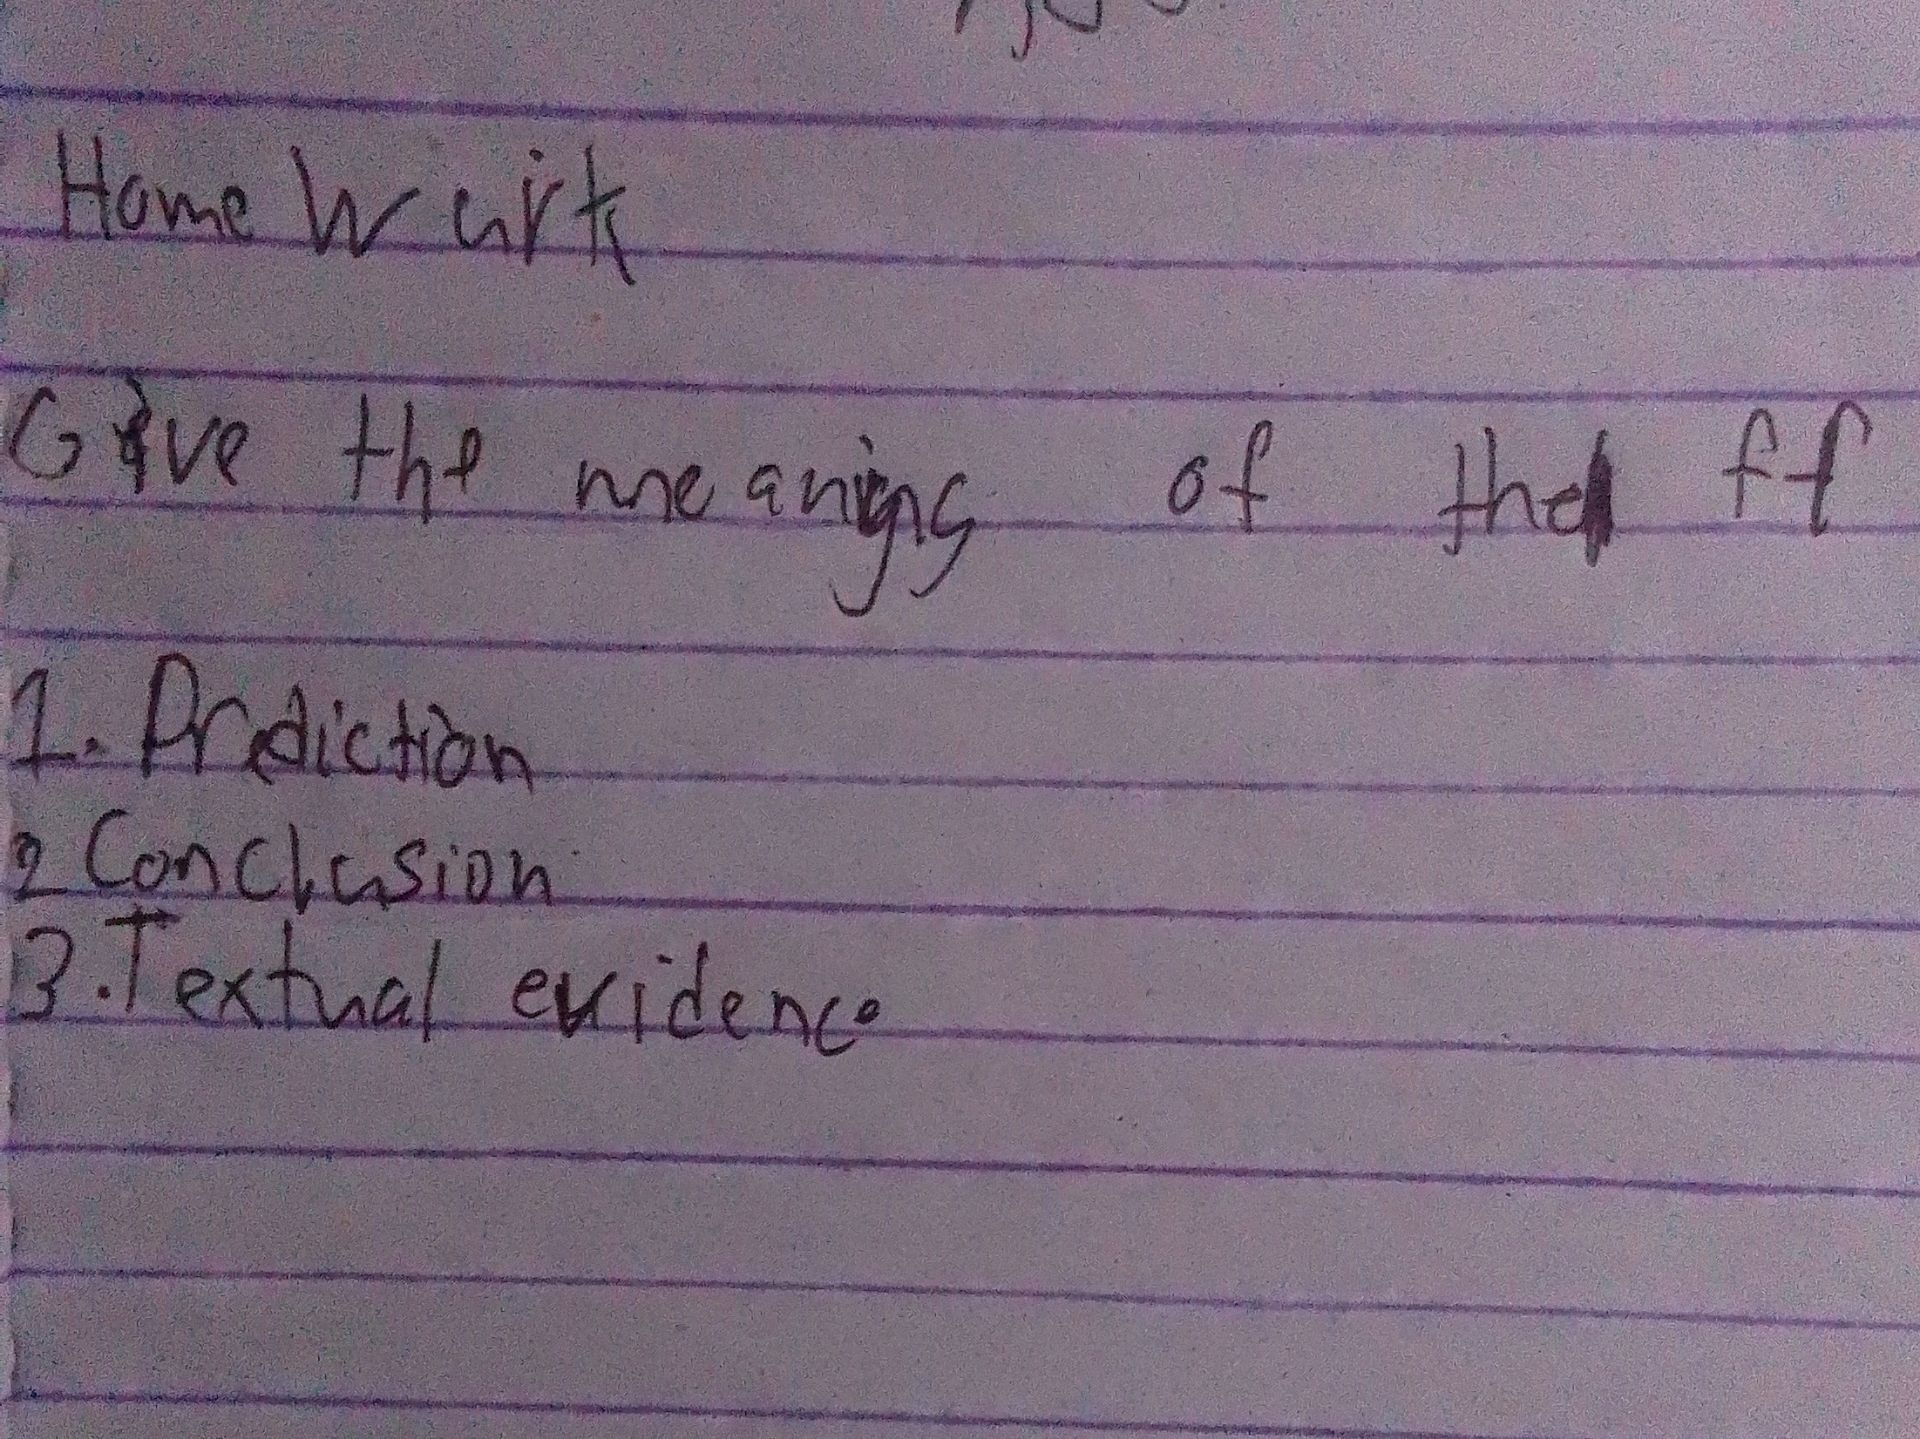 Home Wurk
Give the meanings of the ff
1. Prediction
2 Conclusion
3. Textual evidence